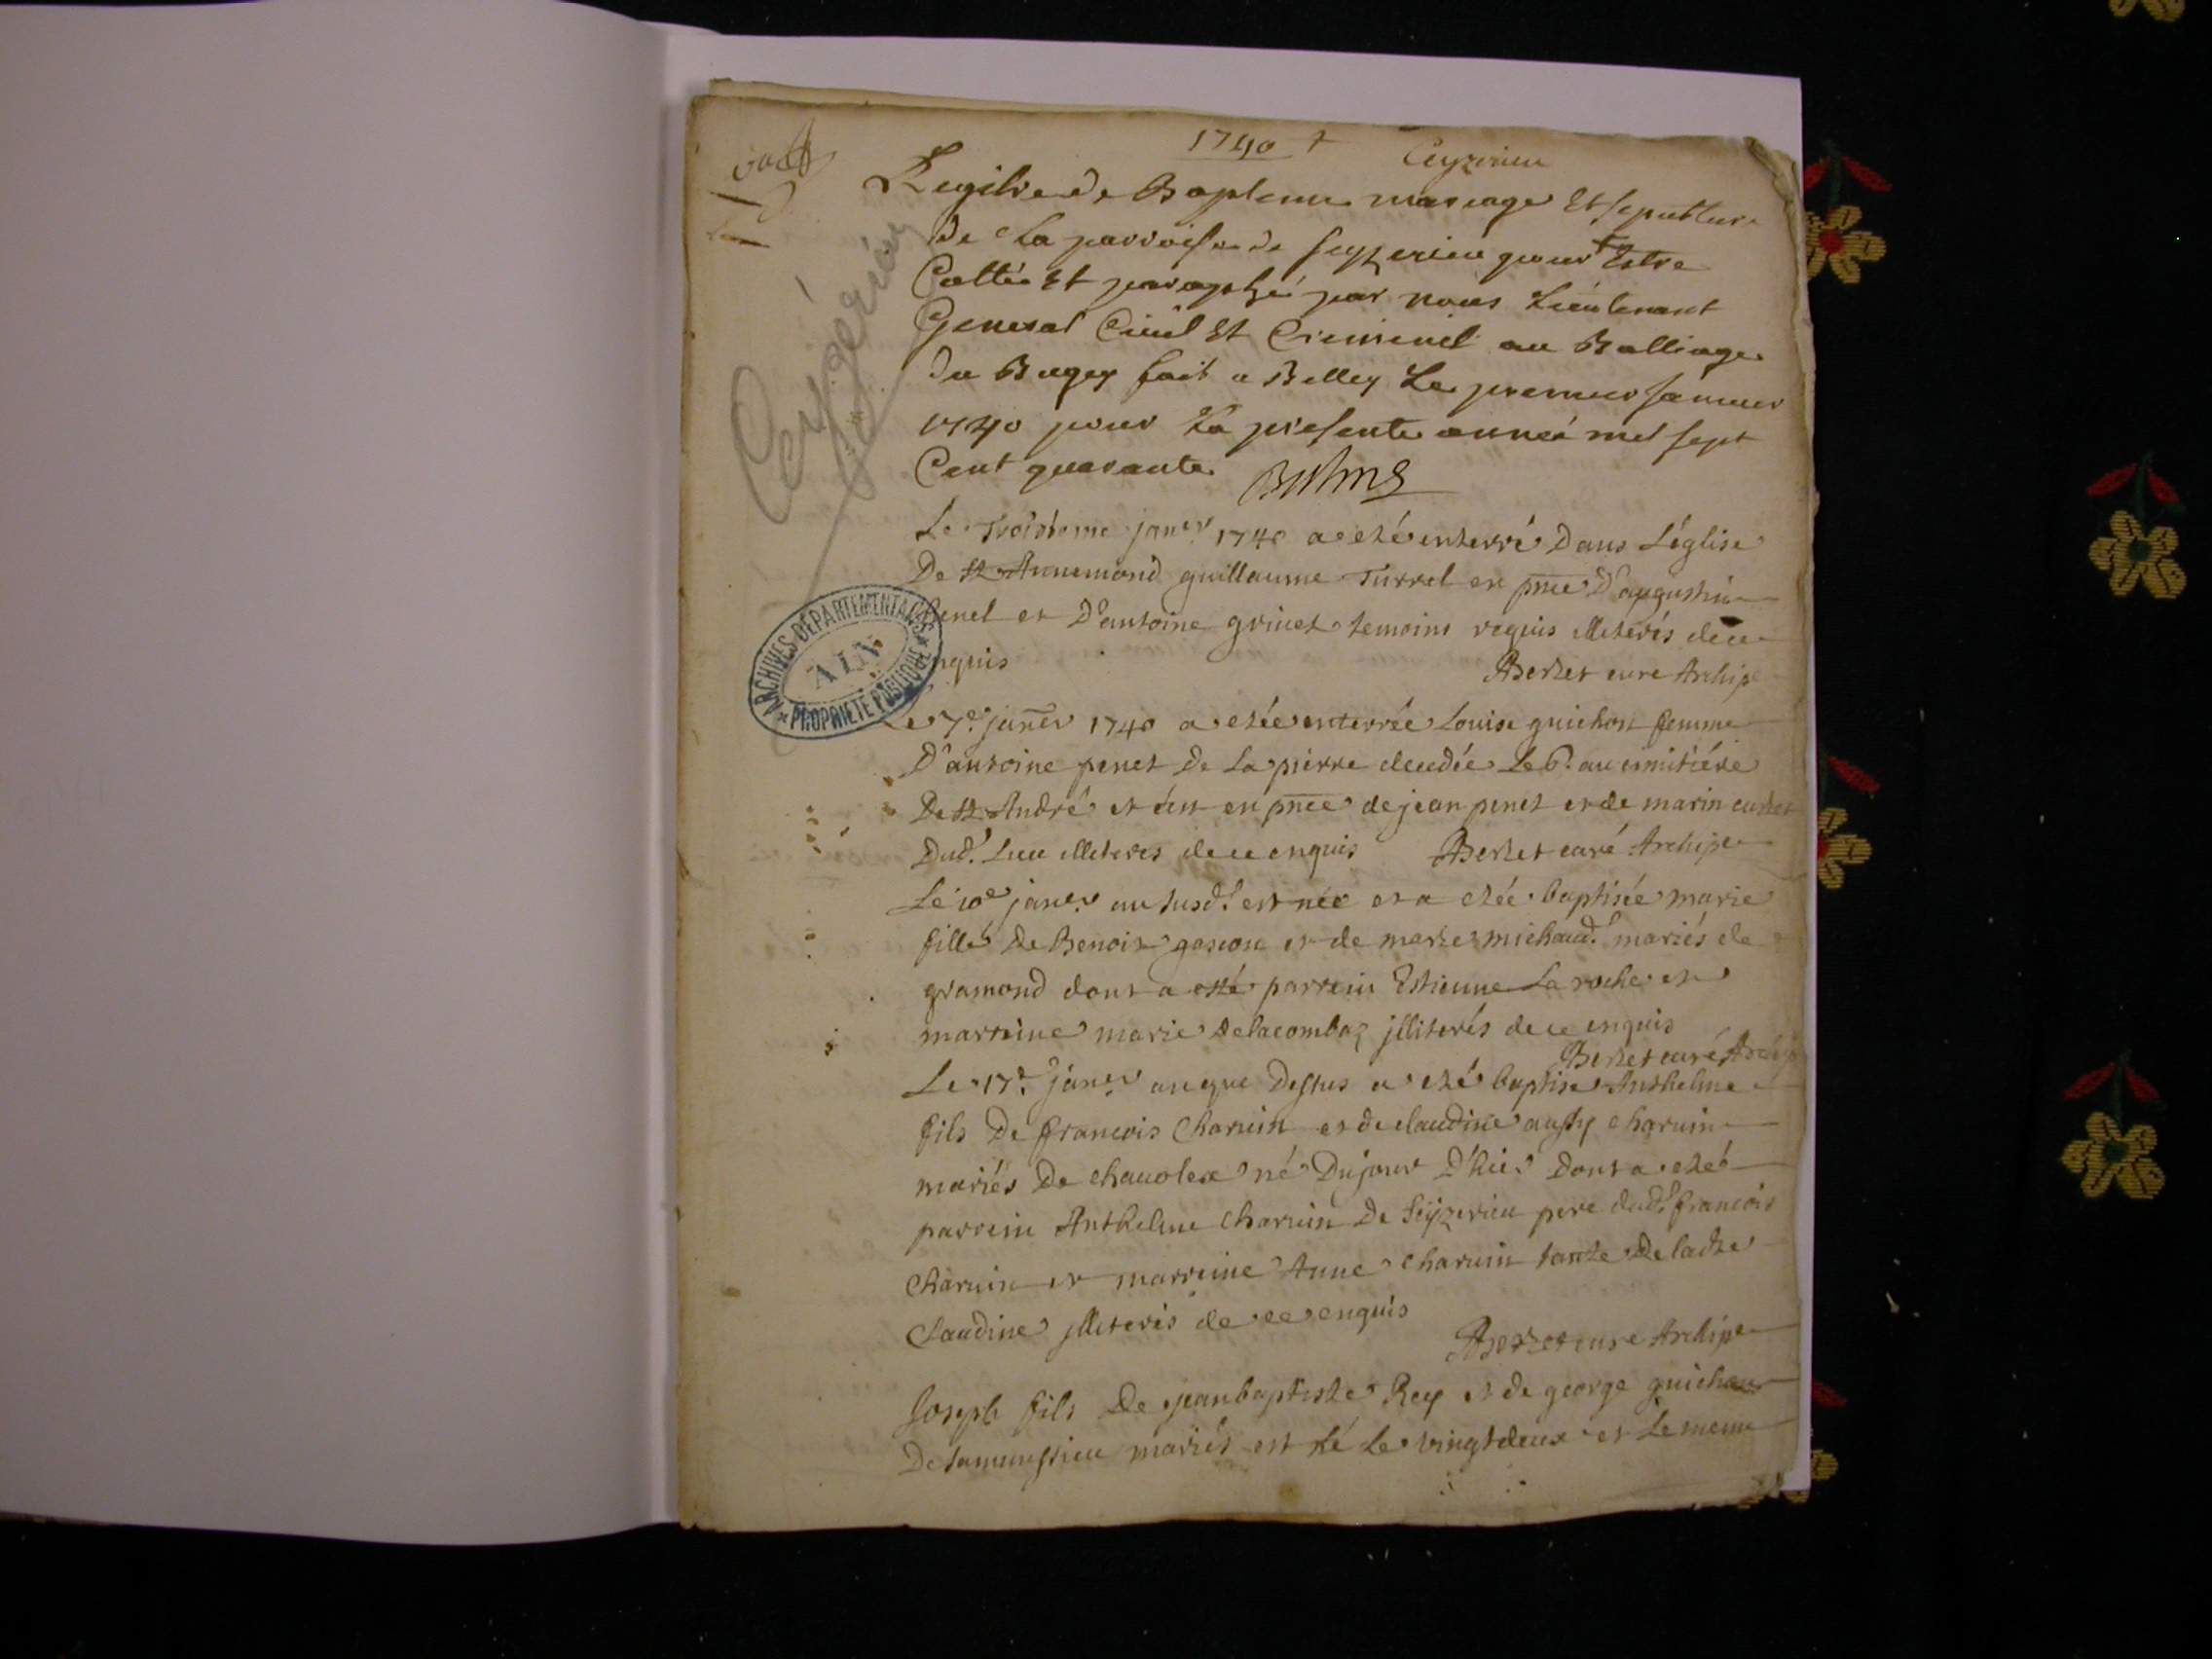 1740 +
Ceyzerieu
Registre de Bapteme mariage Et sepulture
De La parroisse de seyzerieu pour Estre
Cotté Et paraphé par nous Lieutenant
General Civil Et Criminel au Balliage
du Bugey fait a Belley Le premier Janvier
1740 pour La presente année mil sept
Cent quarante
Ceyzérieu
Le Troisieme janer 1740 a eté enterré Dans L'église
De st Annemond guillaume Turrel en pnce D'augustin
et D'antoine grinet temoins requis illiterés de ce
enquis
Berlet curé Archip
ARCHIVES DEPARTEMENTALES
AIN
PROPRIETE PUBLIQUE
Le 7e janer 1740 a etée enterrée Louise guichon femme
D'antoine penet De La pierre decedée Le 6e au cimitiére
De st André et c'est en pnce de jean penet et de marin
Dud. Lieu illiteres de ce enquis Berlet curé Archip
Le 10e janer an susd. est née et a etée baptisée marie
fille De Benoit gascon et de marie michaud mariés de
gramond dont a esté parrein Estienne La roche et
marreine marie Delacombaz jlliterés de ce enquis
Berlet curé Archip
Le 17e janer an que Dessus a eté baptisé Anthelme
fils De francois Charvin et de claudine aussy charvin
mariés De chavolex né Du jour D'hier Dont a eté
parrein Anthelme charvin De Seyzerieu pere dud. francois
Charvin et marreine Anne charvin tante De ladte
Claudine jlliterés de ce enquis
Berlet curé Archip
Joseph fils De jean baptiste Rey et de george guichon
De mariés est né Le vingt deux et Le meme